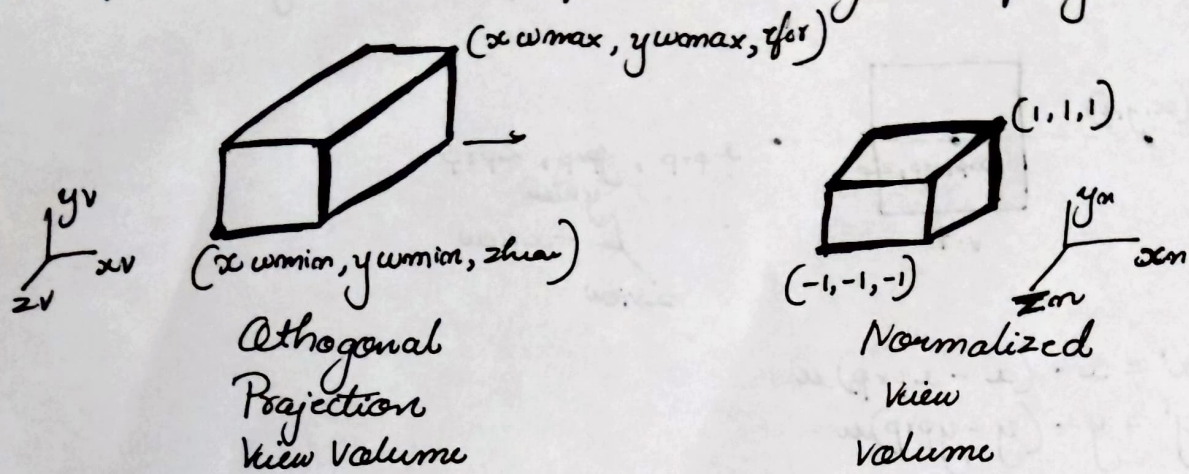 (xwmax, ywmax, zfar)
(1, 1, 1)
yv
xv
zv
(xwmin, ywmin, znear)
(-1, -1, -1)
yn
xn
Zn
Othogonal
Projection
View Volume
Normalized
View
Volume